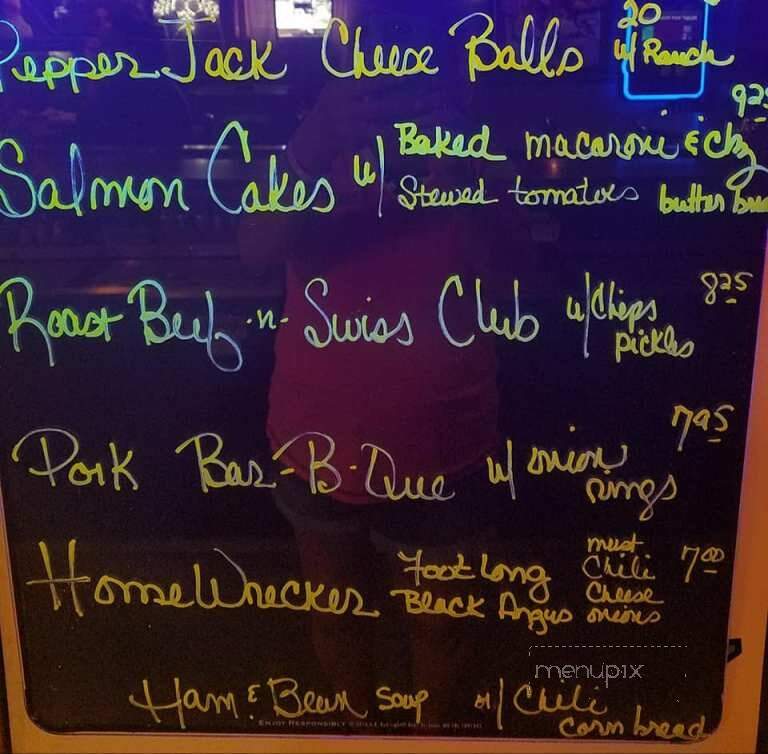 Pepper Jack Cheese Balls 20 w/ Ranch
Salmon Cakes w/ Baked macaroni & chz 925
Stewed tomatoes butter
Roast Beef -n- Swiss Club w/ Chips 825
pickles
Pork Bar-B-Que w/ onion 795
rings
HomeWrecker Foot Long must Chili 700
Black Angus Cheese onions
Ham & Bean soup or/ Chili
corn bread
menupix
ENJOY RESPONSIBLY